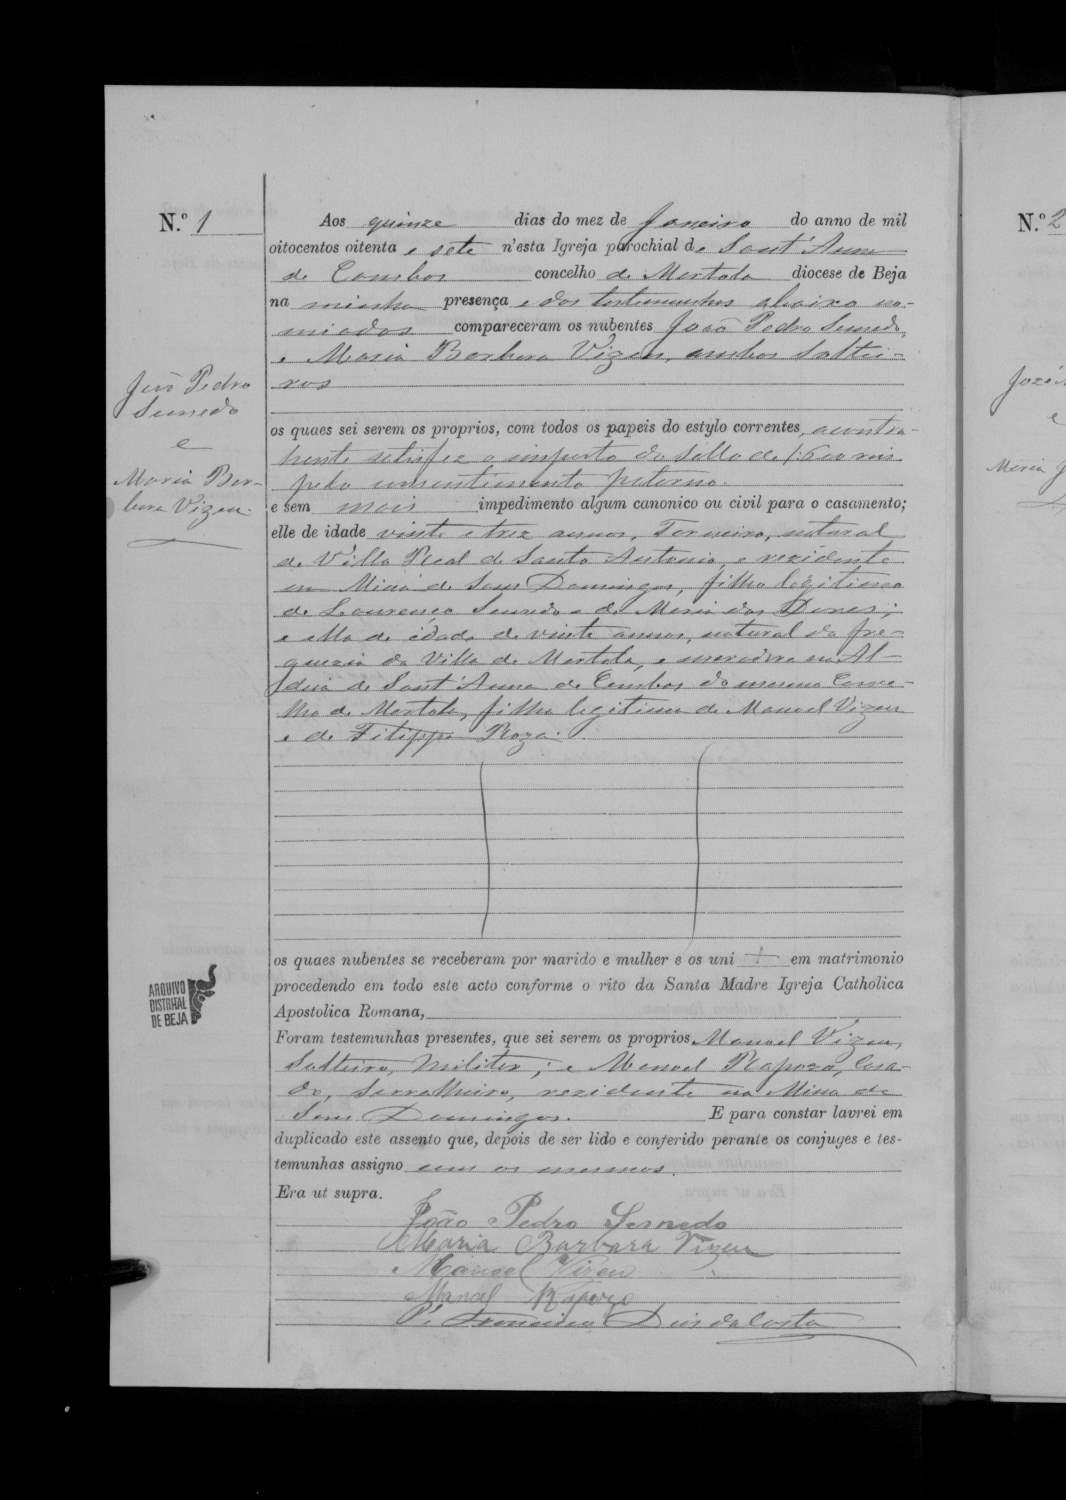 N.º 1
Aos quinze dias do mez de Janeiro do anno de mil
oitocentos oitenta e sete n'esta Igreja parochial de Sant'Anna
de Cambas concelho de Mertola diocese de Beja
na minha presença e das testemunhas abaixo no-
miadas compareceram os nubentes João Pedro Semedo,
e Maria Barbara Vizeu, ambos Soltei-
ros
João Pedro
Semedo
e
Maria Bar-
bara Vizeu.
os quaes sei serem os proprios, com todos os papeis do estylo correntes, a contra-
hente satisfez o imposto do Sello de 1:600 reis
pelo consentimento paterno.
e sem mais impedimento algum canonico ou civil para o casamento;
elle de idade vinte e trez annos, Torneiro, natural
de Villa Real de Santo Antonio, e rezidente
em Mina de Sam Domingos, filho legitimo
de Lourenço Semedo e de Maria das Dores;
e ella de idade de vinte annos, natural da fre-
guezia da Villa de Mertola, e moradora na Al-
deia de Sant'Anna de Cambas do mesmo Conce-
lho de Mertola, filha legitima de Manoel Vizeu
e de Filippa Roza.
os quaes nubentes se receberam por marido e mulher e os uni em matrimonio
procedendo em todo este acto conforme o rito da Santa Madre Igreja Catholica
Apostolica Romana,
Foram testemunhas presentes, que sei serem os proprios Manoel Vizeu,
Solteiro, Militar, e Manoel Rapozo, Casa-
do, Serralheiro, rezidente na Mina de
Sam Domingos. E para constar lavrei em
duplicado este assento que, depois de ser lido e conferido perante os conjuges e tes-
temunhas assigno com os mesmos.
Era ut supra.
João Pedro Semedo
Maria Barbara Vizeu
Manoel Vizeu
Manoel Rapozo
P.e Francisco Dias da Costa
ARQUIVO
DISTRITAL
DE BEJA
N.º 2
José
e
Maria